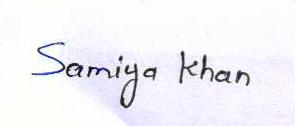 Samiya Khan